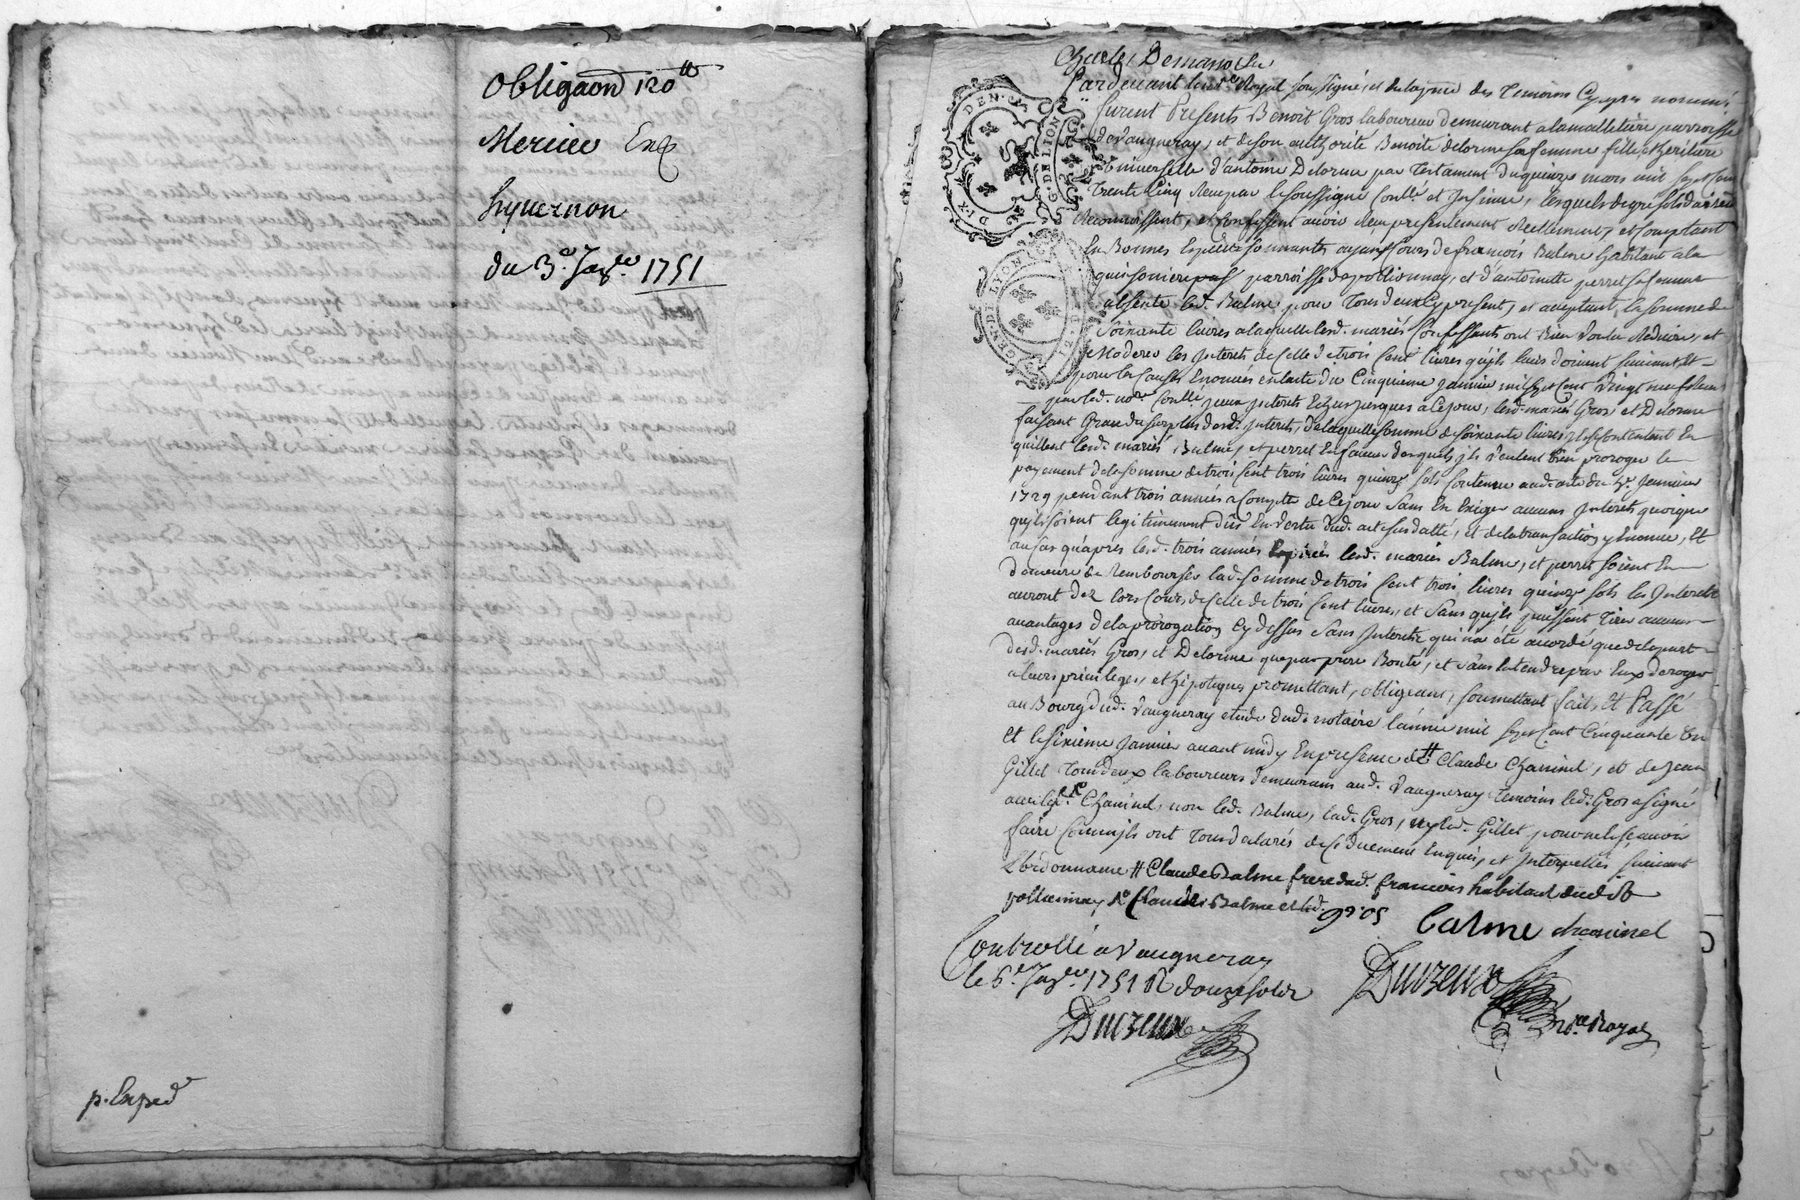 Obligaon 120 tt
Mercier
hyvernon
du 3e. Janer. 1751
p. Exped
Pardevant le nre. Royal soussigné, et de la presence des Temoins Cy apres nommés
furent Presents Benoit Gros laboureur demeurant a lamalletiere parroisse
de Vaugneray, et de son authorité Benoite delorme sa femme fille, et heritiere
Universelle d'antoine Delorme par Testament du quenze mars mil sept Cent
Trente Cinq Receu par le soussigné Conllé et Insinué, lesquels de gré solidairemt
Reconnoissent, et Confessent avoir Receu presentement Reellement, et Comptant
En Bonnes Especes sonnantes ayant Cours de francois Balme habitant a la
parroisse de pollionnay, et d'antoinette perret sa femme
absente led. Balme pour Tous deux Cy present, et acceptant, la somme de
Soixante livres a laquelle lesd. mariés Confessants ont Bien Voulu Reduire, et
Moderer les Interets de Celle de trois Cent livres qu'ils leurs doivent suivant, et
pour les Causes Enoncées en lacte du Cinquieme Janvier mil sept Cent Vingt neuf Receu
par led. nore. Conllé, Iceux Interets Echeus jusques a Ce jour, lesd. mariés Gros, et Delorme
faisant Grace du surplus desd. Interets, De laquelle somme de soixante livres, Ils se Contentent En
quittent lesd. mariés Balme, et perret En faveur desquels Ils Veulent Bien proroger le
payement de la somme de trois Cent trois livres quinze sols Contenue aud. acte du 5e. Janvier
1729 pendant trois années a Compter de Ce jour Sans En Exiger aucuns Interets quoique
quils soient legitimement dûs En Vertu dud. acte susdatté, et de la transaction y Enoncée, Et
au Cas qu'apres lesd. trois années Expirées lesd. mariés Balme, et perret soient En
demeure de Rembourser lad. somme de trois Cent trois livres quinze sols les Interets
auront dez lors Cours de Celle de trois Cent livres, et Sans qu'ils puissent Tirer aucuns
avantages de la prorogation Cy dessus Sans Interets qui n'a été accordé que de la part
desd. mariés Gros, et Delorme que par pure Bonté, et sans Entendre par Eux deroger
a leurs privileges, et hipoteques promettant, obligeant, soumettant fait, Et Passé
au Bourg dud. Vaugneray etude dud. notaire l'année mil sept Cent Cinquante Un
Et le sixieme Janvier avant midy En presence de # Claude Chaninel, et de Jean
Gillet Tous deux laboureurs demeurans aud. Vaugneray Temoins led. Gros a signé
avec led. Chaninel, non led. Balme, lad. Gros, ny led. Gillet pour ne le scavoir
faire Comme ils ont Tous declarés de Ce Duement Enquis, et Interpellés suivant
L'ordonnance # Claude Balme frere dud. francois habitant dud. lieu
pollionnay, Claude Balme et led.
gros Balme chaninel
Controllé a Vaugneray
le 6e. Janer. 1751 R douze sols
Duvzeux Duvzeux
nre. Royal